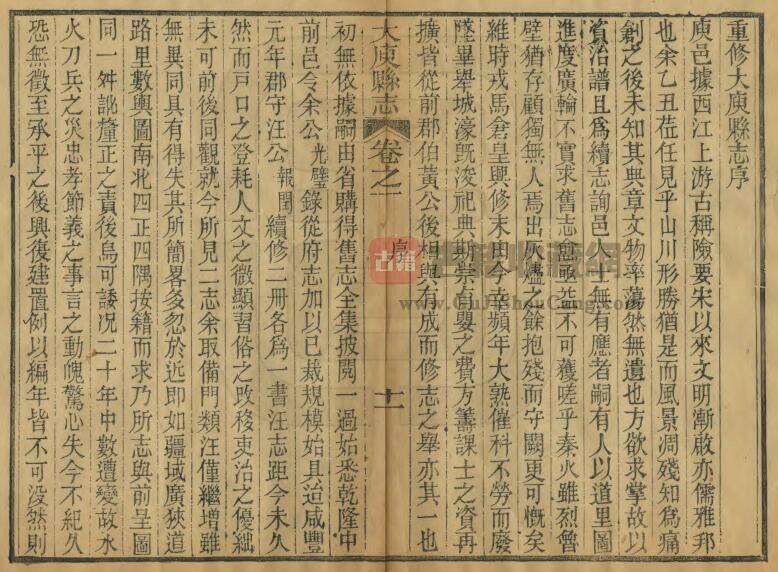 重修大庾縣志序
庾邑據西江上游古稱險要宋以來文明漸啟亦儒雅邦
也余乙丑莅任見乎山川形勝猶是而風景凋殘知爲痛
創之後未知其典章文物率蕩然無遺也方欲求掌故以
資治譜且爲續志詢邑人士無有應者嗣有人以道里圖
進度廣輪不實求舊志愈亟並不可獲嗟乎秦火雖烈魯
壁猶存顧獨無人焉出灰燼之餘抱殘而守闕更可慨矣
維時戎馬倉皇興修未由今幸頻年大熟催科不勞而廢
墜畢舉城濠旣浚祀典斯崇育嬰之費方籌課士之資再
擴皆從前郡伯黃公後相與有成而修志之舉亦其一也
大庾縣志 卷之一 序 十一
初無依據嗣由省購得舊志全集披閱一過始悉乾隆中
前邑令余公光璧錄從府志加以已裁規模始具迨咸豐
元年郡守汪公報閏續修二冊各爲一書汪志距今未久
然而戶口之登耗人文之微顯習俗之改移吏治之優絀
未可前後同觀就今所見二志余取備門類汪僅繼增雖
無異同具有得失其所簡畧多忽於近即如疆域廣狹道
路里數輿圖南北四正四隅按籍而求乃所志與前呈圖
同一舛訛釐正之責後烏可諉况二十年中數遭變故水
火刀兵之災忠孝節義之事言之動魄驚心失今不紀久
恐無徵至承平之後興復建置例以編年皆不可沒然則
古籍
www.GuJiShouCang.com